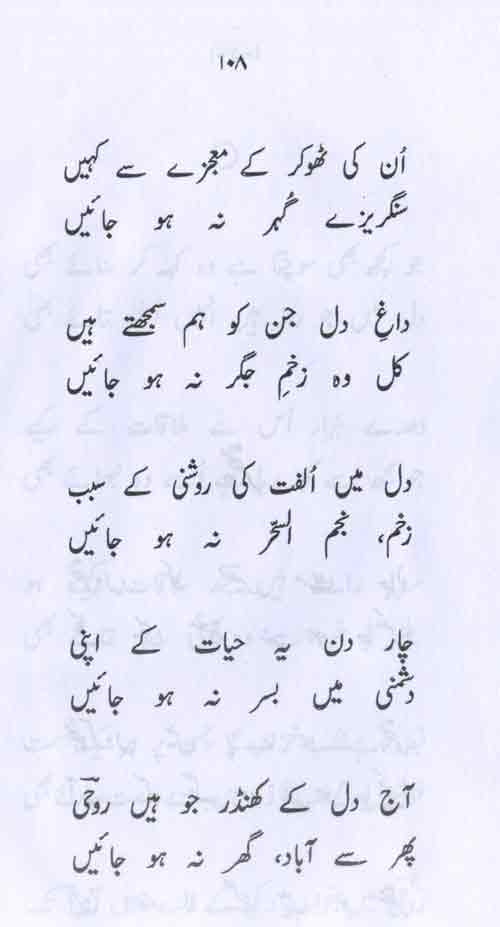 ۱۰۸
اُن کی ٹھوکر کے معجزے سے کہیں
سنگریزے گُہر نہ ہو جائیں
داغِ دل جن کو ہم سمجھتے ہیں
کل وہ زخمِ جگر نہ ہو جائیں
دل میں اُلفت کی روشنی کے سبب
زخم، نجم السّحَر نہ ہو جائیں
چار دن یہ حیات کے اپنی
دشمنی میں بسر نہ ہو جائیں
آج دل کے کھنڈر جو ہیں روحیؔ
پھر سے آباد، گھر نہ ہو جائیں